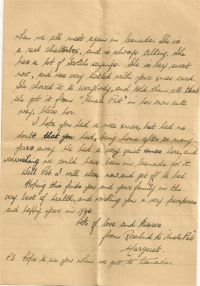 when we all meet again in Canada. She is
a real chatterbox, and is always talking. She
has a lot of Scotch sayings. She is very sweet
now, and was very excited with your xmas card.
She showed it to everybody, and told them all that
she got it from "Uncle Pat" in her own cute
way, bless her.
I hope you had a nice xmas, but had no
doubt that you had, being home after so many
years away. We had a very quiet xmas here, and
wishing we could have been in Canada for it.
Well Pat I will close now and get off to bed
Hoping this finds you and your family in the
very best of health, and wishing you a very prosperous
and happy year in 1946
Lots of love and kisses
from Rosalind to Uncle Pat
Margaret.
P.S. Hope to see you when we get to Canada